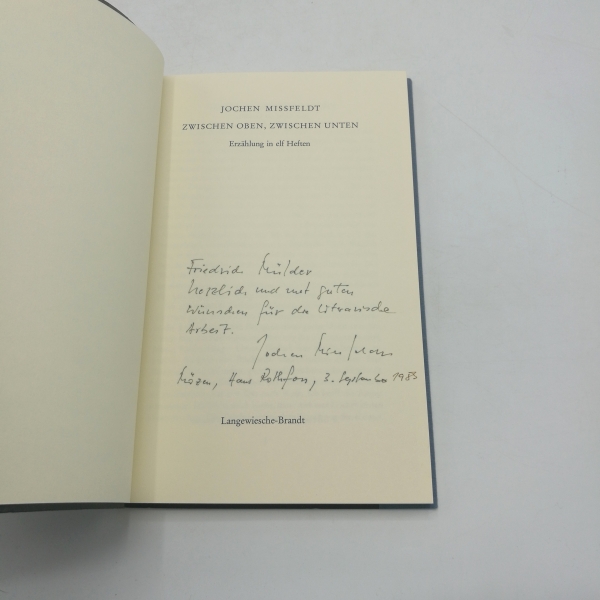 JOCHEN MISSFELDT
ZWISCHEN OBEN, ZWISCHEN UNTEN
Erzählung in elf Heften
Friedrich Mülder
herzlich und mit guten
Wünschen für die literarische
Arbeit.
Jochen Missfeldt
Hans 3. September 1985
Langewiesche-Brandt